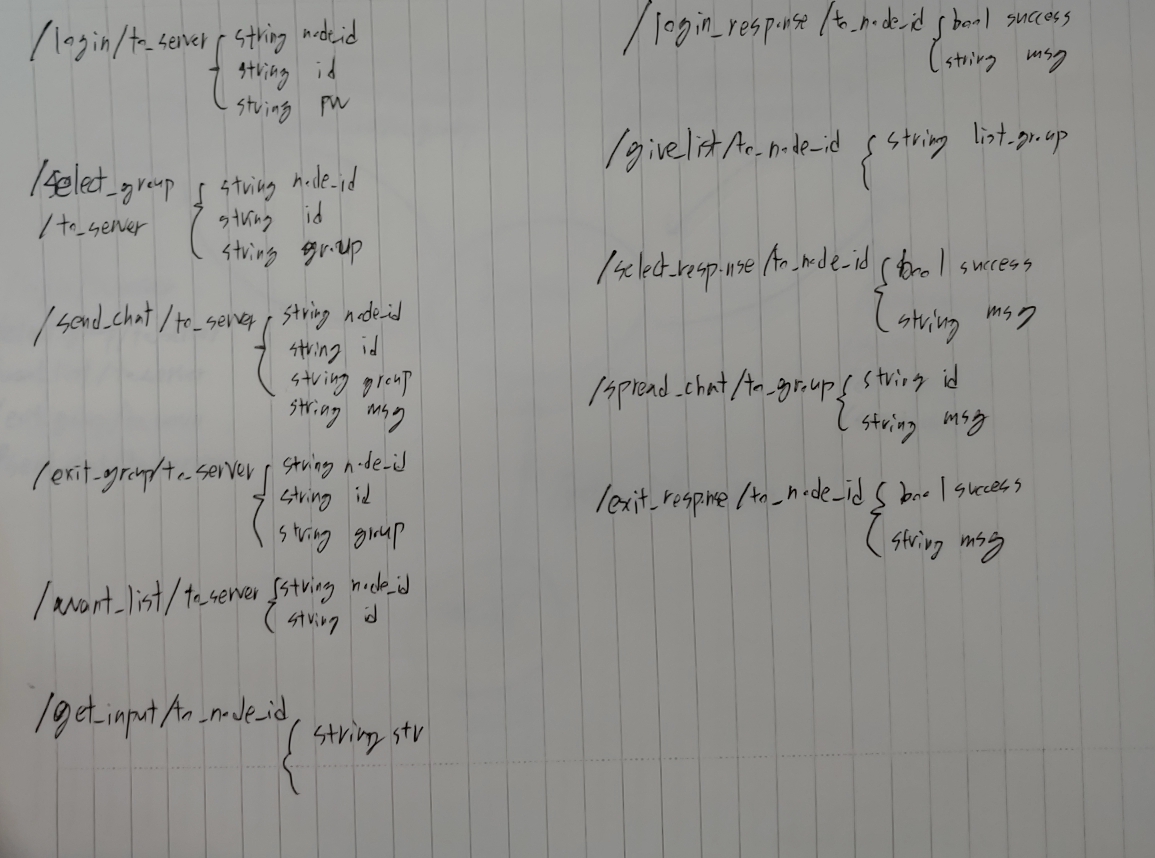 /login/to_server { string node_id
string id
string pw
/select_group { string node_id
/to_server string id
string group
/send_chat/to_server { string node_id
string id
string group
string msg
/exit_group/to_server { string node_id
string id
string group
/want_list/to_server { string node_id
string id
/get_input/to_node_id { string str
/login_response/to_node_id { bool success
string msg
/give_list/to_node_id { string list_group
/select_response/to_node_id { bool success
string msg
/spread_chat/to_group { string id
string msg
/exit_response/to_node_id { bool success
string msg